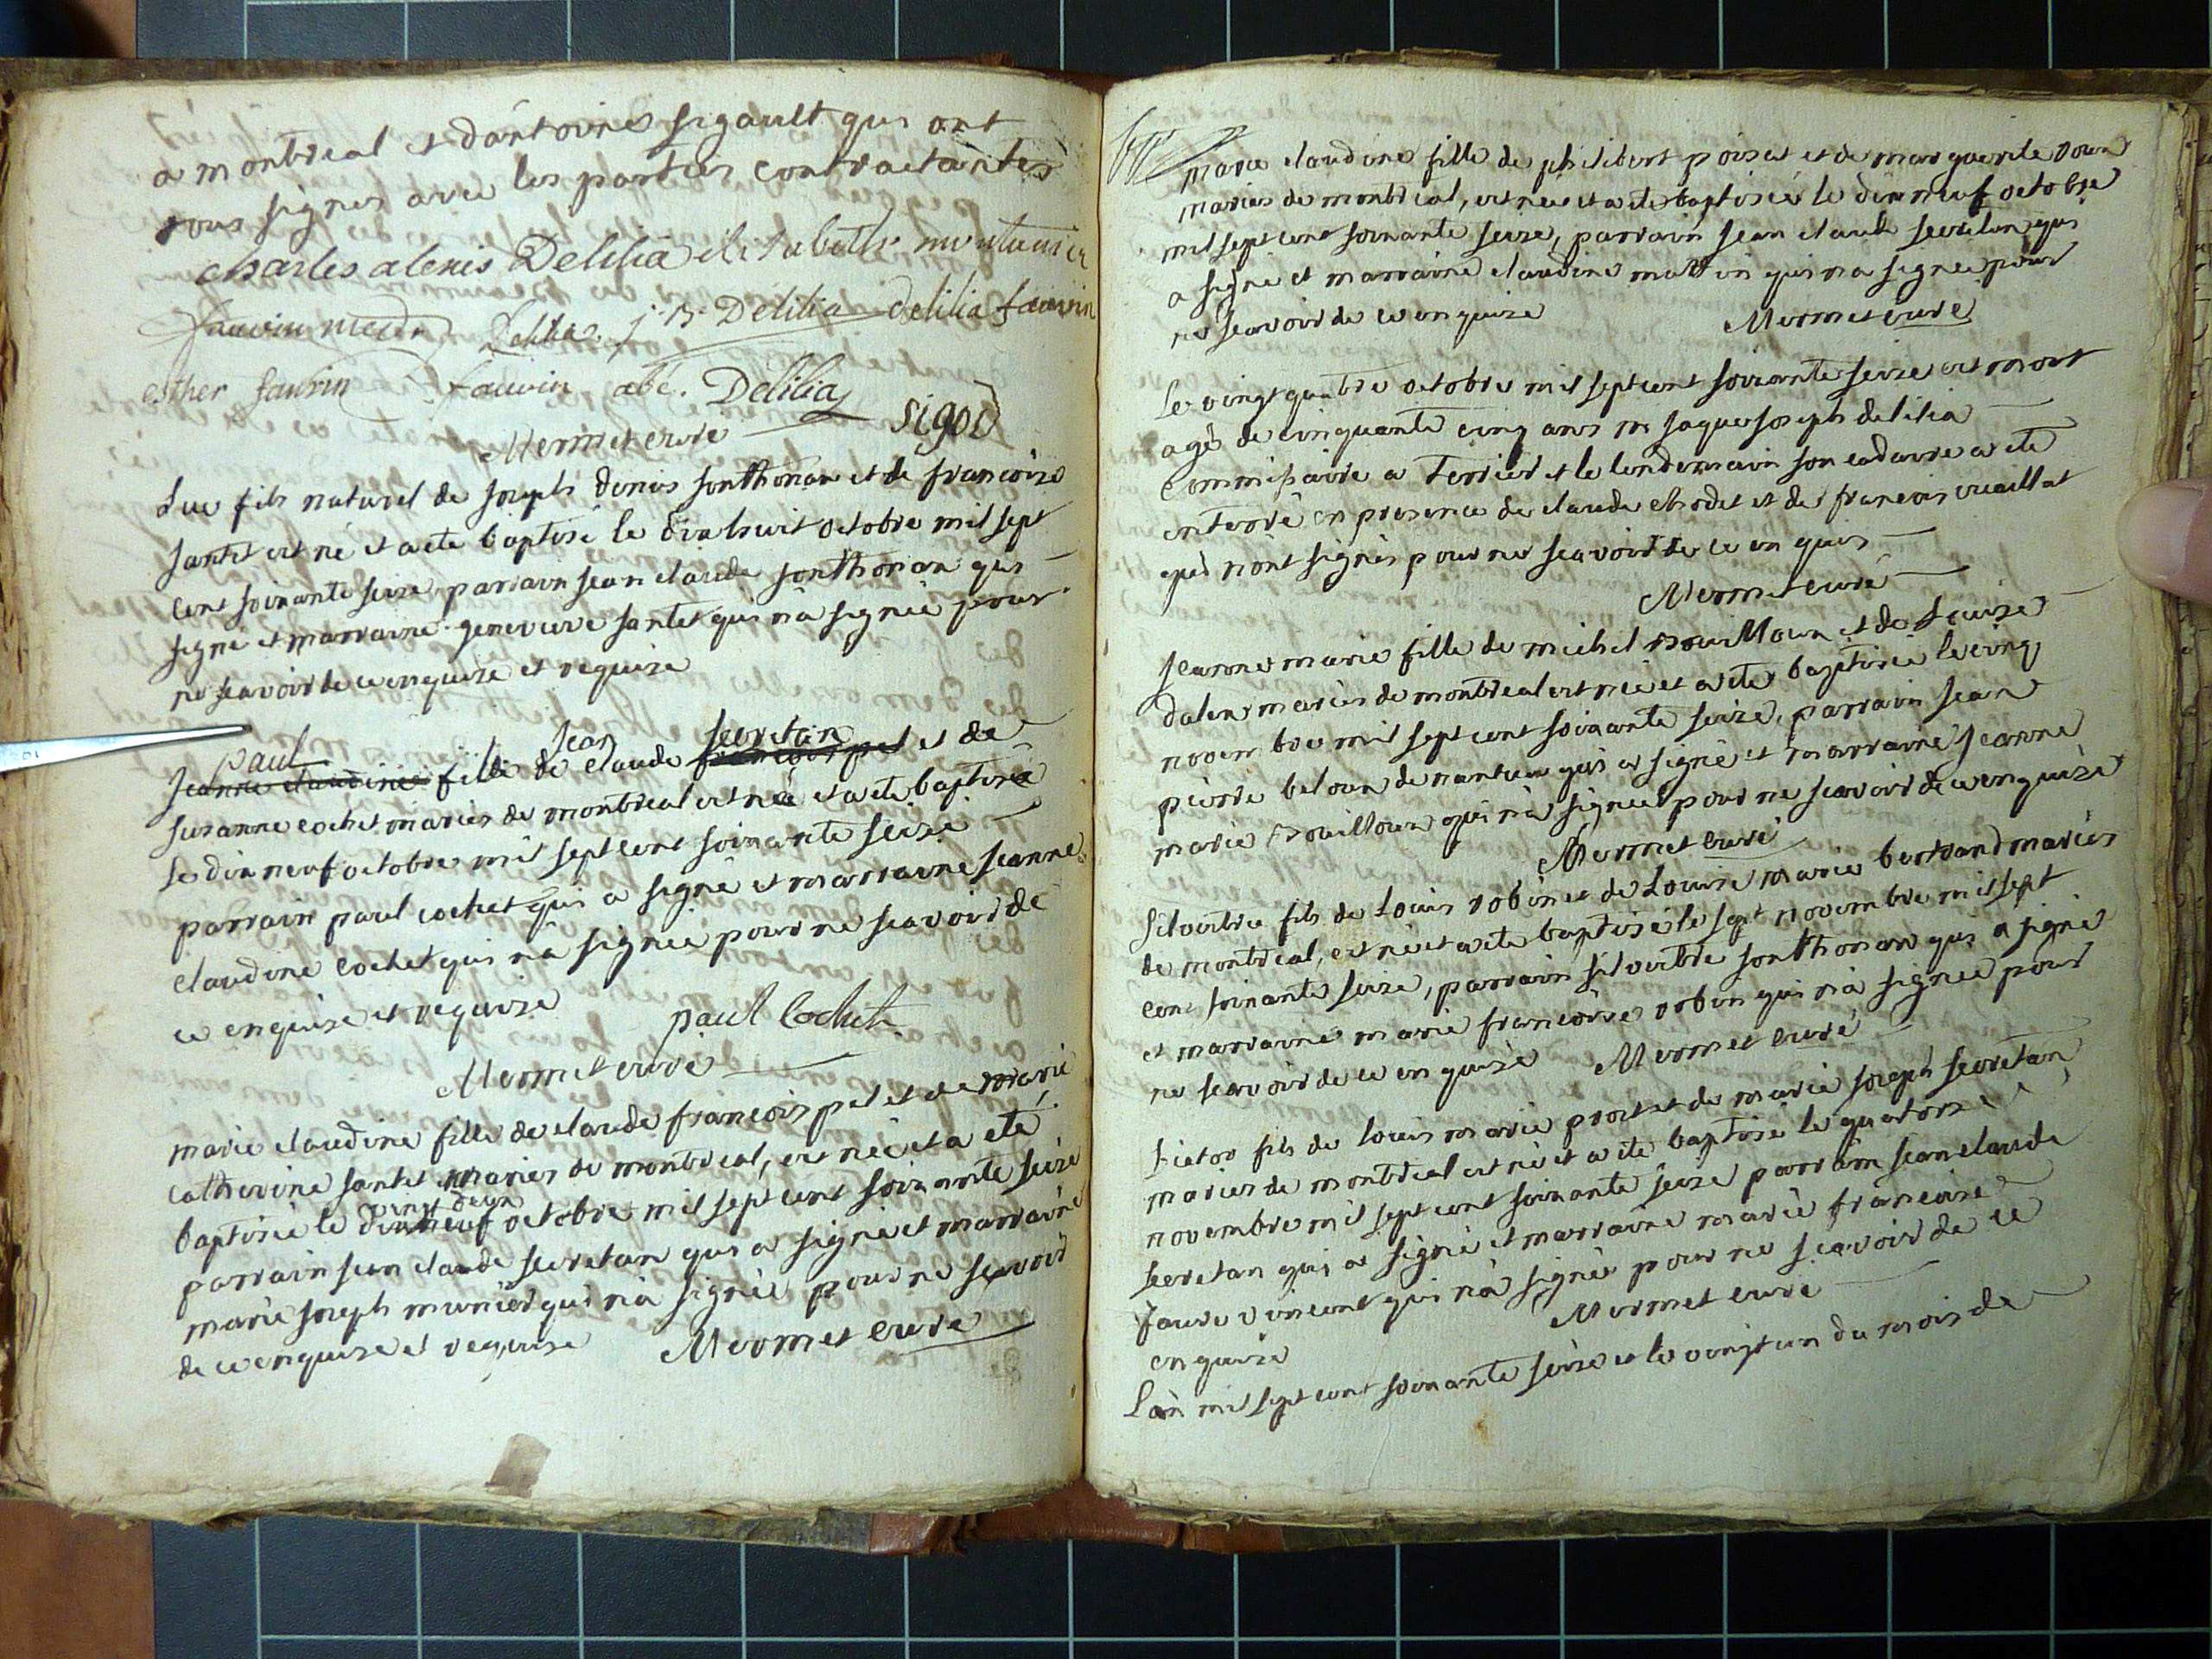 a montreal et dantoine sigault qui ont
tous signes avec les parties contractantes
charles alexis Delilia
fauvin Delilia j. B. Delilia delilia fauvin
esther fauvin fauvin abé. Delilia
Mermet curé sigod
Luc fils naturel de joseph denis sonthonax et de francoise
santet est né et a ete baptisé le dix huit octobre mil sept
cent soixante seize parrain jean claude sonthonax qui
signe et marraine genevieve santet qui n'a signée pour
ne scavoir de ce enquise et requise
paul jean secretan
jeanne claudine fille de claude francois pet et de
susanne cochet maries de montreal est né et a ete baptisé
le dix neuf octobre mil sept cent soixante seize
parrain paul cochet qui a signé et marraine jeanne
claudine cochet qui n'a signée pour ne scavoir de
ce enquise et requise paul Cochet
Mermet curé
marie claudine fille de claude francois pet et de marie
catherine santet maries de montreal, est née et a eté
vingt deux
baptisée le dix neuf octobre mil sept cent soixante seize
parrain jean claude secretan qui a signé et marraine
marie joseph munier qui n'a signée pour ne scavoir
de ce enquise et requise Mermet curé
marie claudine fille de philibert poiset et de marguerite roux
maries de montreal, est née et a ete baptisée le dix neuf octobre
mil sept cent soixante seize, parrain jean claude secretan qui
a signé et marraine claudine martin qui n'a signée pour
ne scavoir de ce enquise Mermet curé
Le vingt quatre octobre mil sept cent soixante seize est mort
agé de cinquante cinq ans m jaques joseph delilia
commissaire a terrier et le lendemain son cadavre a ete
enterré en presence de claude chodet et de francois
qui n'ont signés pour ne scavoir de ce enquis
Mermet curé
jeanne marie fille de michel rouilloux et de Louise
dalen maries de montreal est née et a ete baptisée le cinq
novembre mil sept cent soixante seize, parrain jean
pierre beloux de nantua qui a signé et marraine jeanne
marie rouilloux qui n'a signée pour ne scavoir de ce enquise
Mermet curé
silvestre fils de Louis robin et de Louise marie bertrand mariés
de montreal, est né et a ete baptisé le sept novembre mil sept
cent soixante seize, parrain silvestre sonthonax qui a signé
et marraine marie francoise robin qui n'a signée pour
ne scavoir de ce enquise Mermet curé
victor fils de louis marie prost et de marie joseph secretan
maries de montreal est né et a ete baptisé le quatorze
novembre mil sept cent soixante seize parrain jean claude
secretan qui a signé et marraine marie francoise
faure vincent qui n'a signée pour ne scavoir de ce
enquise Mermet curé
L'an mil sept cent soixante seize et le vingt un du mois de